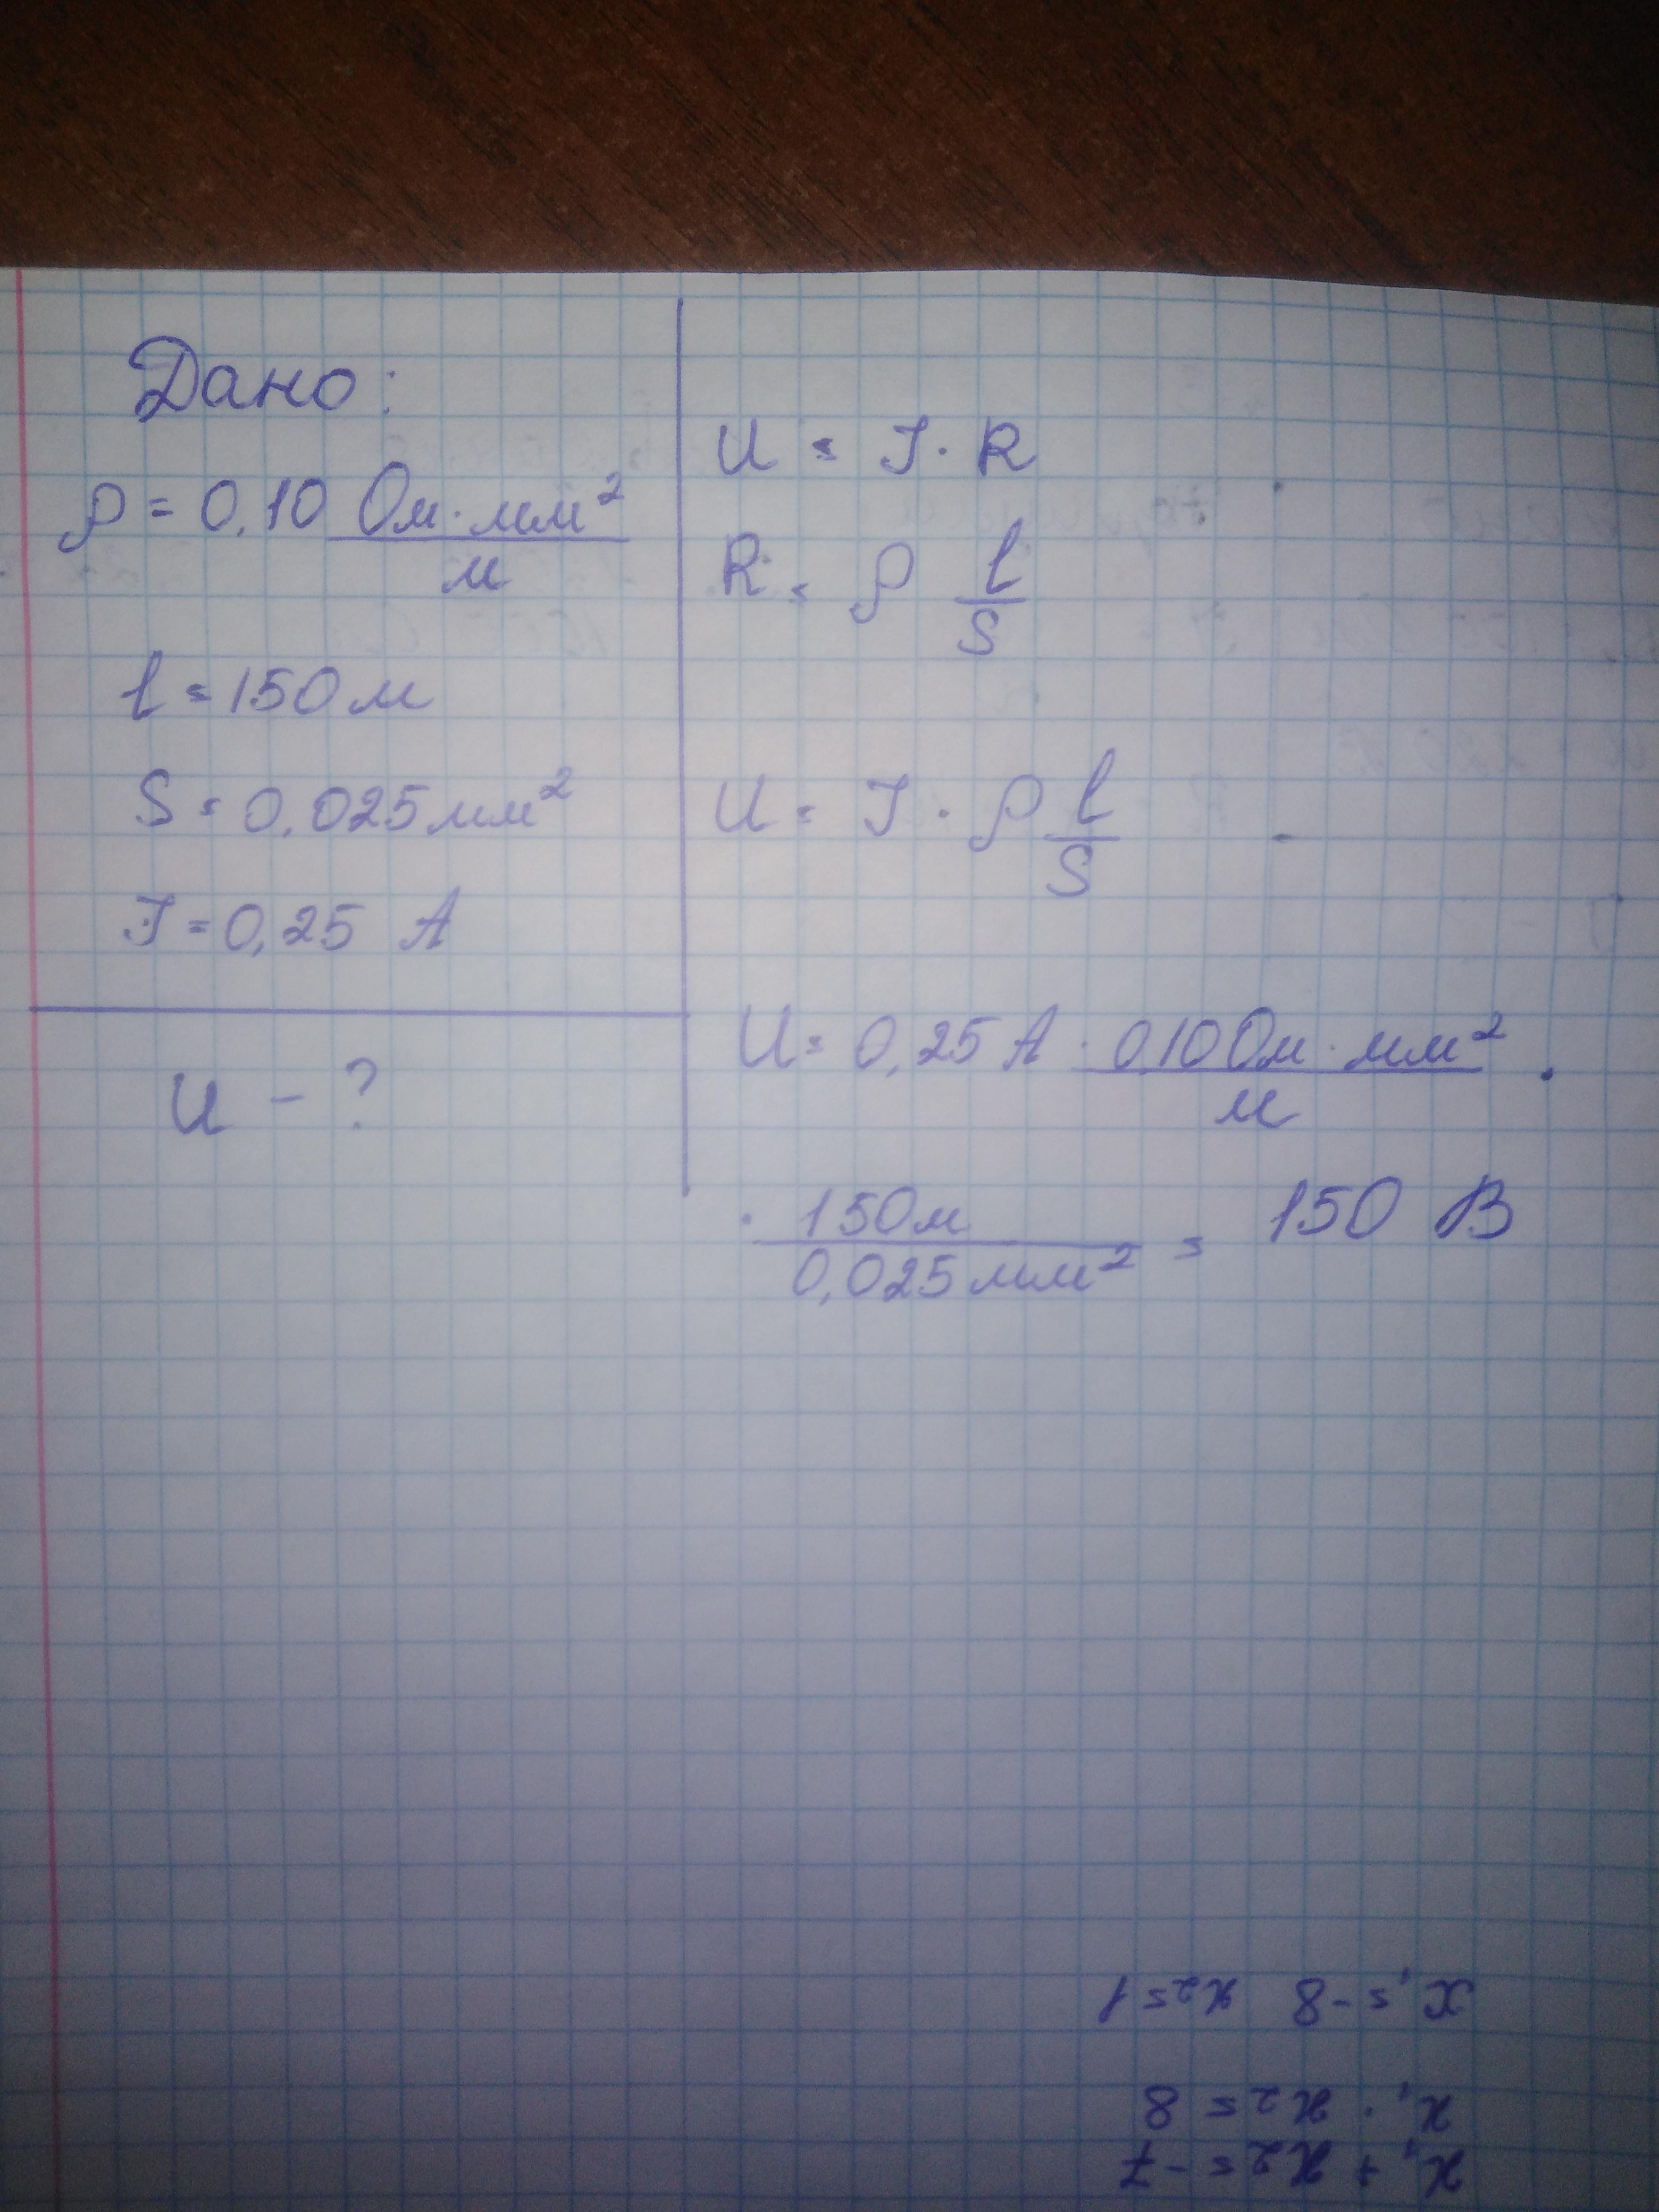 Дано:
ρ = 0,10 Ом·мм²/м
l = 150 м
S = 0,025 мм²
I = 0,25 А
U - ?
U = I · R
R = ρ l/S
U = I · ρ l/S
U = 0,25 А · 0,10 Ом · мм²/м ·
· 150 м/0,025 мм² = 150 В
x₁ + x₂ = -7
x₁ · x₂ = 8
x₁ = -8 x₂ = 1